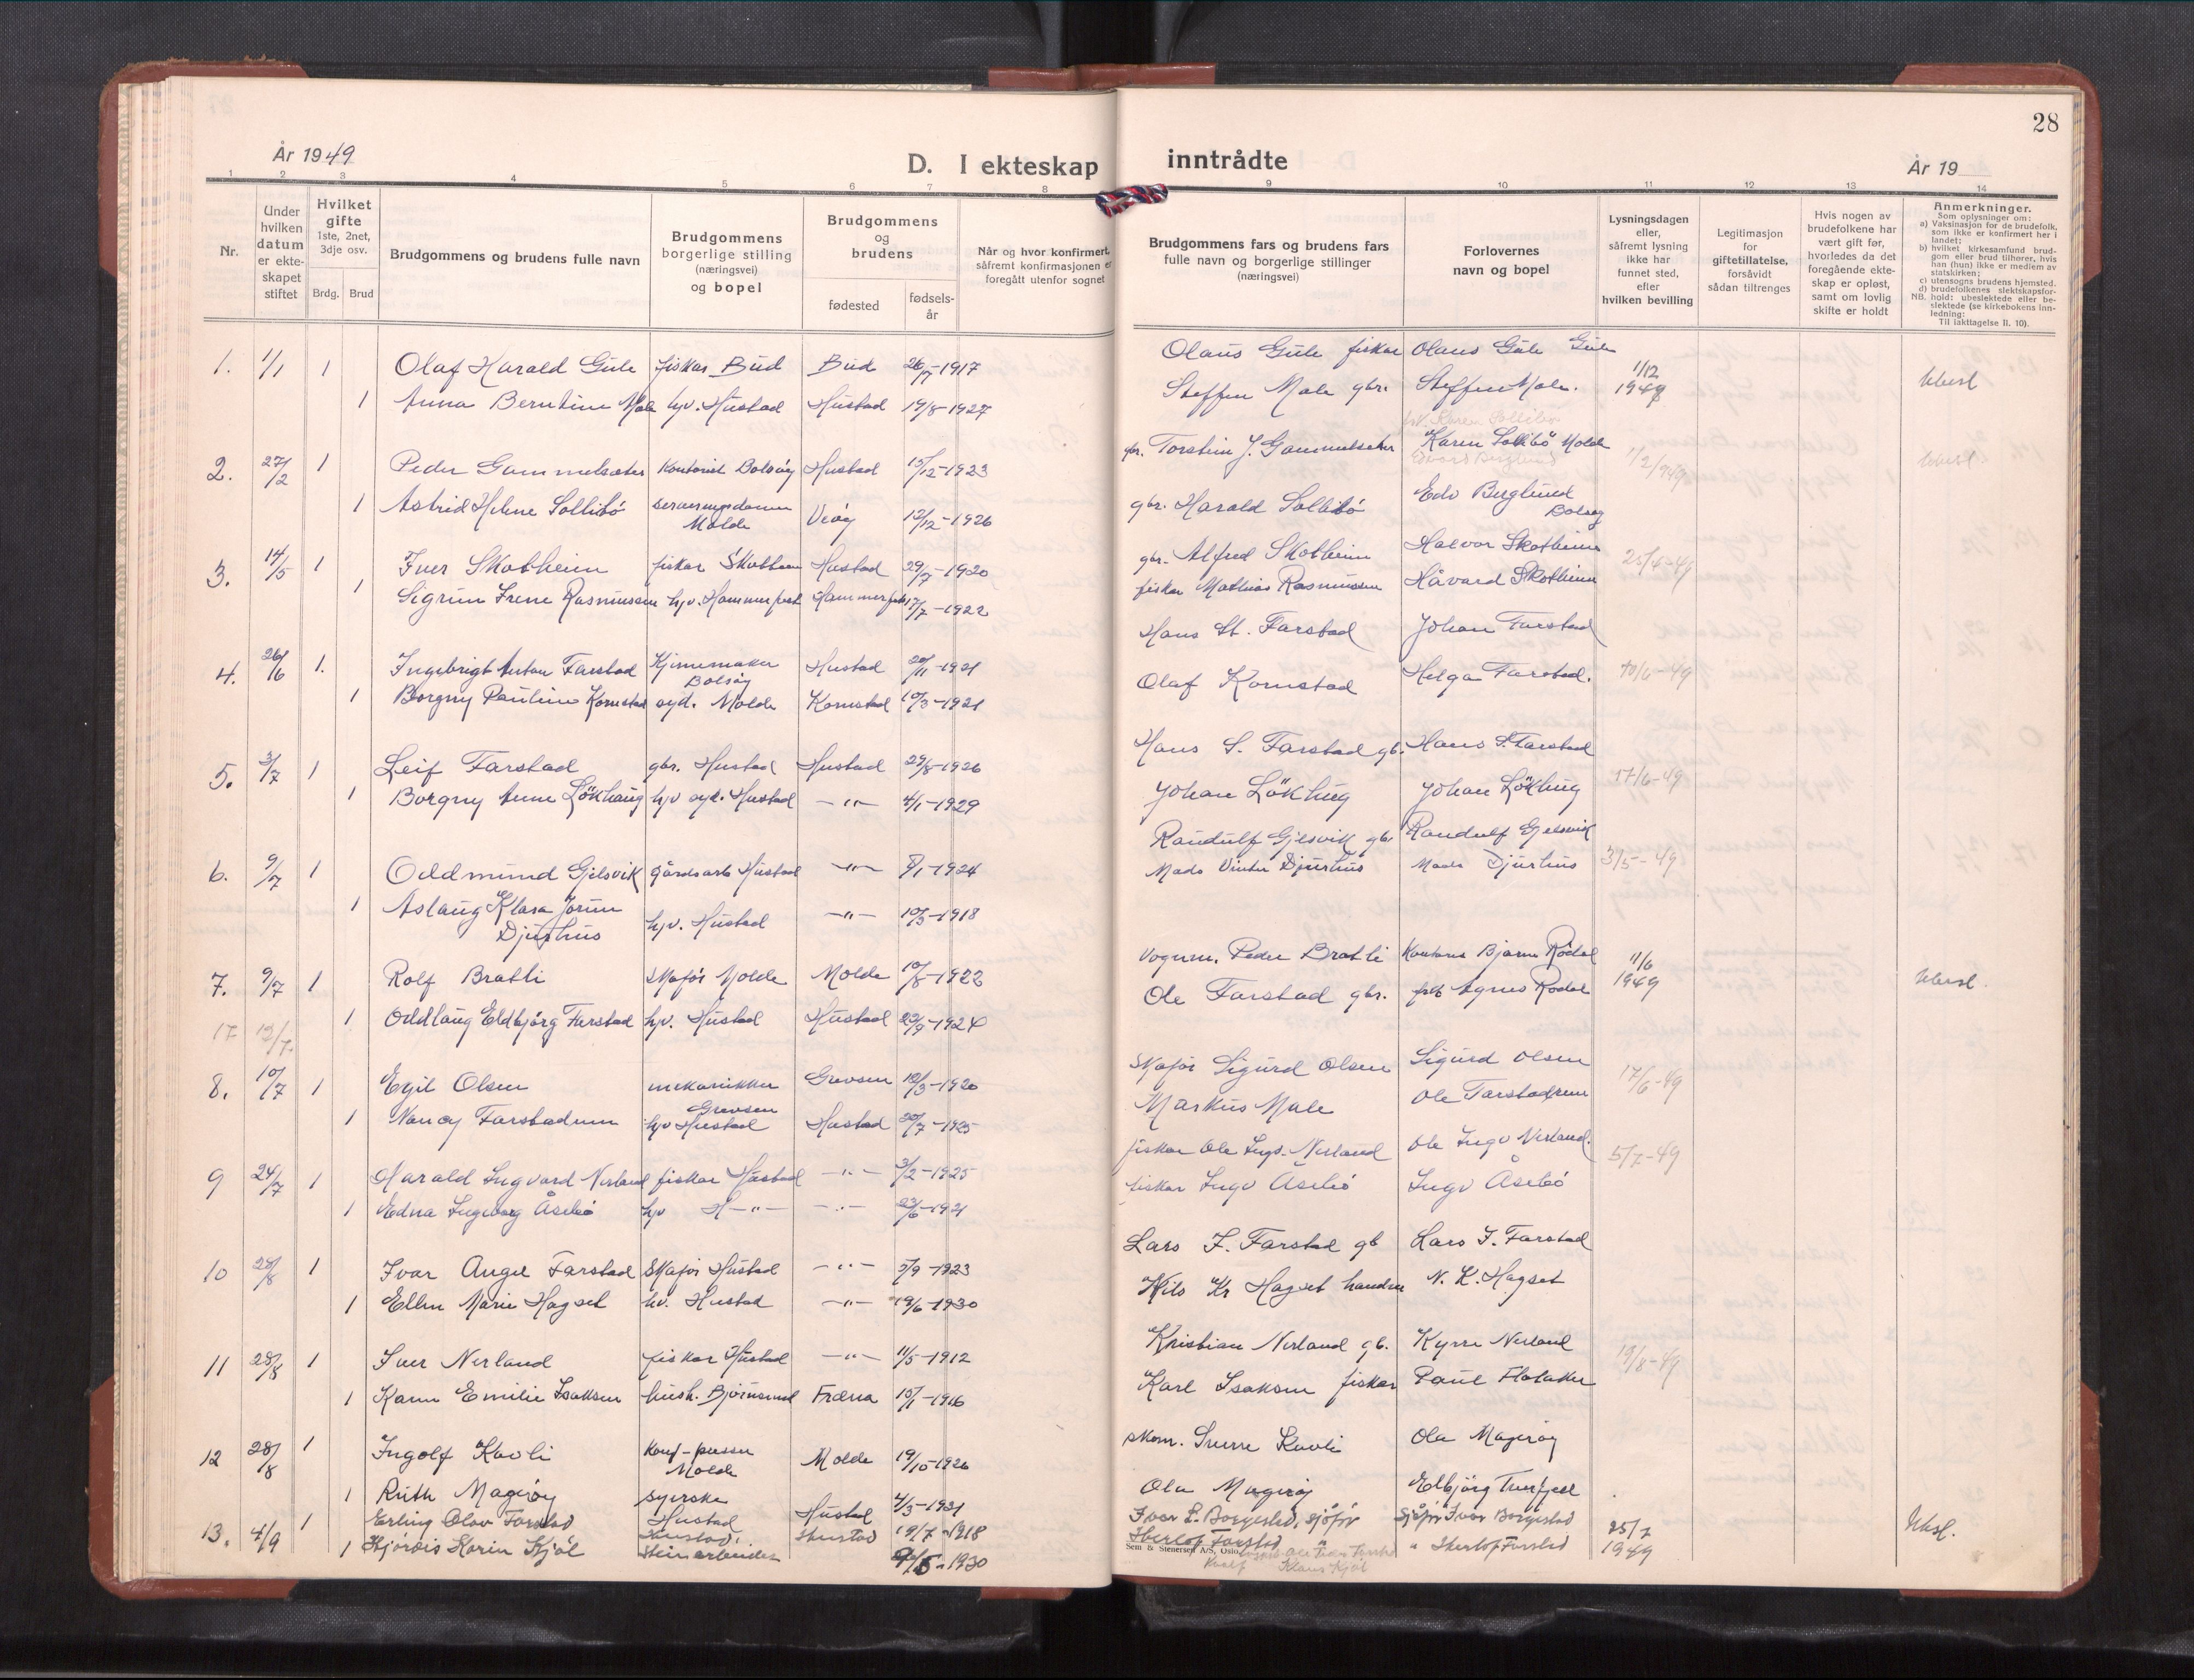 28
År 1949
D. I ekteskap inntrådte
År 19
1 2 3 4 5 6 7 8 9 10 11 12 13 14
Nr.
Under hvilken datum er ekteskapet stiftet
Hvilket gifte
1ste, 2net, 3dje osv.
Brdg. Brud
Brudgommens og brudens fulle navn
Brudgommens borgerlige stilling (næringsvei) og bopel
Brudgommens og brudens
fødested
fødselsår
Når og hvor konfirmert, såfremt konfirmasjonen er foregått utenfor sognet
Brudgommens fars og brudens fars fulle navn og borgerlige stillinger (næringsvei)
Forlovernes navn og bopel
Lysningsdagen eller, såfremt lysning ikke har funnet sted, efter hvilken bevilling
Legitimasjon for giftetillatelse, forsåvidt sådan tiltrenges
Hvis nogen av brudefolkene har vært gift før, hvorledes da det foregående ekteskap er opløst, samt om lovlig skifte er holdt
Anmerkninger.
Som oplysninger om:
a) Vaksinasjon for de brudefolk, som ikke er konfirmert her i landet;
b) hvilket kirkesamfund brudgom eller brud tilhører, hvis han (hun) ikke er medlem av statskirken;
c) utensogns brudens hjemsted.
d) brudefolkenes slektskapsforhold: ubeslektede eller beslektede (se kirkebokens innledning:
NB.
Til iakttagelse II. 10).
1. 1/1 1 Olaf Harald Gule fisker Bud Bud 26/7-1917 Olaus Gule fisker Olaus Gule Gule 1/12 1948 Ubesl
1 Anna Berntine Male hjv. Hustad Hustad 19/8-1927 Steffen Male gbr. Steffen Male.
2. 27/2 1 Peder Gammelsæter Kontorist Bolsøy Hustad 15/12-1923 gbr. Torstein J. Gammelsæter Karen Sollibø Molde 11/2 1949 Ubesl.
1 Astrid Helene Sollibø serveringsdame Molde Veøy 12/12-1926 gbr. Harald Sollibø Edv Berglund Bolsøy
3. 14/5 1 Iver Skotheim fisker Skotheim Hustad 29/7-1920 gbr. Alfred Skotheim Halvor Skotheim 25/4-49
1 Sigrun Irene Rasmussen hjv. Hammerfest Hammerfest 17/7-1922 fisker Mathias Rasmussen Håvard Skotheim
4. 26/6 1. Ingebrigt Anton Farstad Kjinemaker Bolsøy Hustad 20/11-1921 Hans St. Farstad Johan Farstad
1 Borgny Pauline Kornstad syd. Molde Kornstad 10/3-1921 Olaf Kornstad Helga Farstad. 10/6-49
5. 3/7 1 Leif Farstad gbr. Hustad Hustad 29/8-1926 Hans S. Farstad gb. Hans S. Farstad
1 Borgny Anne Løkhaug hjv syd. Hustad —"— 4/1-1929 Johan Løkhug Johan Løkhug 17/6-49
6. 9/7 1 Oddmund Gjelsvik gårdsarb Hustad —"— 8/1-1924 Randulf Gjelsvik gbr Randulf Gjelsvik
1 Aslaug Klara Jorun Djurhus hjv. Hustad —"— 10/3-1918 Mads Vinter Djurhus Mads Djurhus 3/5-49
7. 9/7 1 Rolf Bratli Sjåfør Molde Molde 10/8-1922 Vognm. Peder Bratli Kontorm Bjarne Rødal 11/6 1949 Ubesl.
1 Oddlaug Eldbjørg Farstad hjv. Hustad Hustad 22/9-1924 Ole Farstad gbr. frk Agnes Rødal
17 12/7.
8. 10/7 1 Egil Olsen mekanikker Grevsen Grevsen 12/3-1920 Sjåfør Sigurd Olsen Sigurd Olsen 17/6-49
1 Nancy Farstadrem hjv Hustad Hustad 20/7-1925 Markus Male Ole Farstadrem
9 24/7 1 Harald Ingvard Nerland fisker Hustad —"— 3/2-1925 fisker Ole Ingv. Nerland Ole Ingv Nerland. 5/7-49
1 Edna Ingeborg Åsebø hjv H—"— —"— 23/6-1921 fisker Ingv Åsebø Ingv Åsebø
10 28/8 1 Ivar Angel Farstad Sjåfør Hustad —"— 5/9-1923 Lars I. Farstad gb Lars I. Farstad
1 Ellen Marie Hagset hv. Hustad —"— 19/6-1930 Nils Kr Hagset handm N. K. Hagset
11 28/8 1 Iver Nerland fisker Hustad —"— 11/5-1912 Kristian Nerland gb. Kyrre Nerland 19/8-49
1 Karen Emilie Isaksen hush. Bjørnsund Fræna 15/1-1916 Karl Isaksen fisker Paul Flataker
12 28/8 1 Ingolf Kavli Molde Molde 19/10-1926 Skom. Sverre Kavli Ola Magerøy
1 Ruth Magerøy syerske Hustad Hustad 4/3-1921 Ola Magerøy Elbjørg Tverfjell
13. 4/9 1 Erling Olav Farstad Hustad, Steinarbeider Hustad 19/7-1918 Ivar P. Borgestad, sjøfør Sjåfør Ivar Borgestad 25/7 1949 Ubsl.
1 Hjørdis Karin Kjøl 9/5-1930 Herlof Farstad " Herlof Farstad
Sem & Stenersen A/S, Oslo
Klaus Kjøl